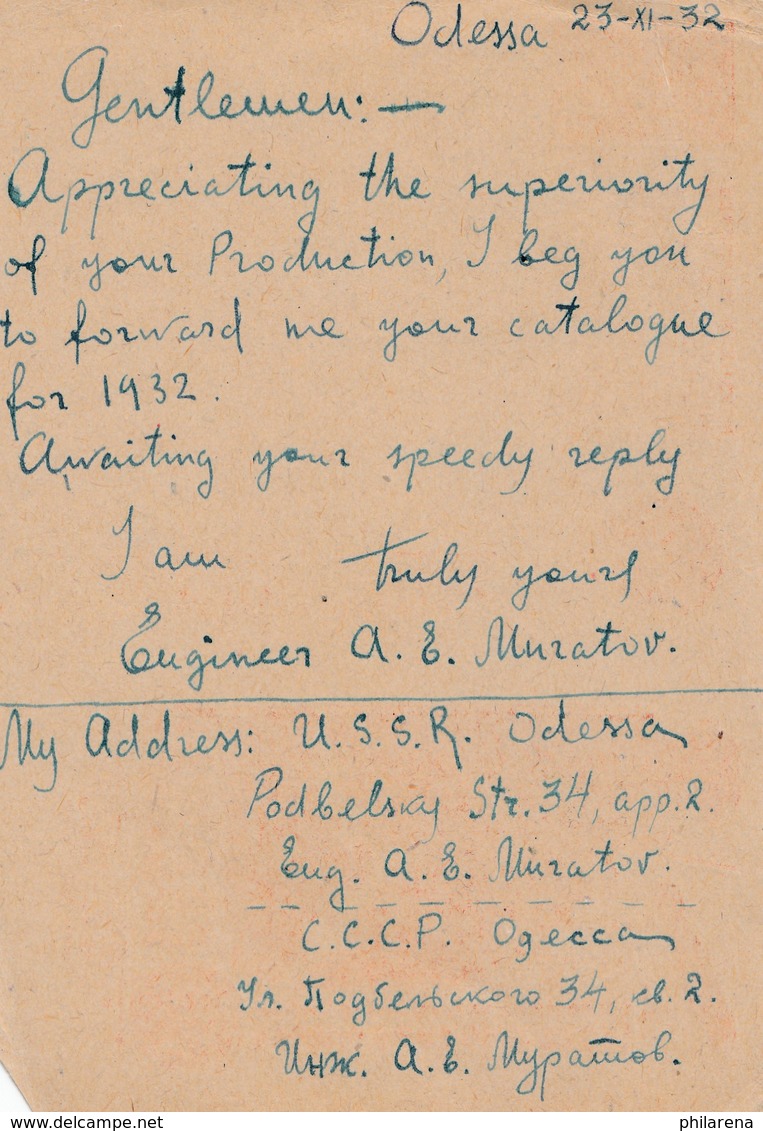 Odessa 23-XI-32
Gentlemen: —
Appreciating the superiority
of your Production, I beg you
to forward me your catalogue
for 1932.
Awaiting your speedy reply
I am truly yours
Engineer A. E. Muratov.
My Address: U.S.S.R. Odessa
Podbelsky Str. 34, app. 2.
Eng. A. E. Muratov.
С.С.С.Р. Одесса
Ул. Подбельского 34, кв. 2.
Инж. А. Е. Муратов.
www.delcampe.net
philarena